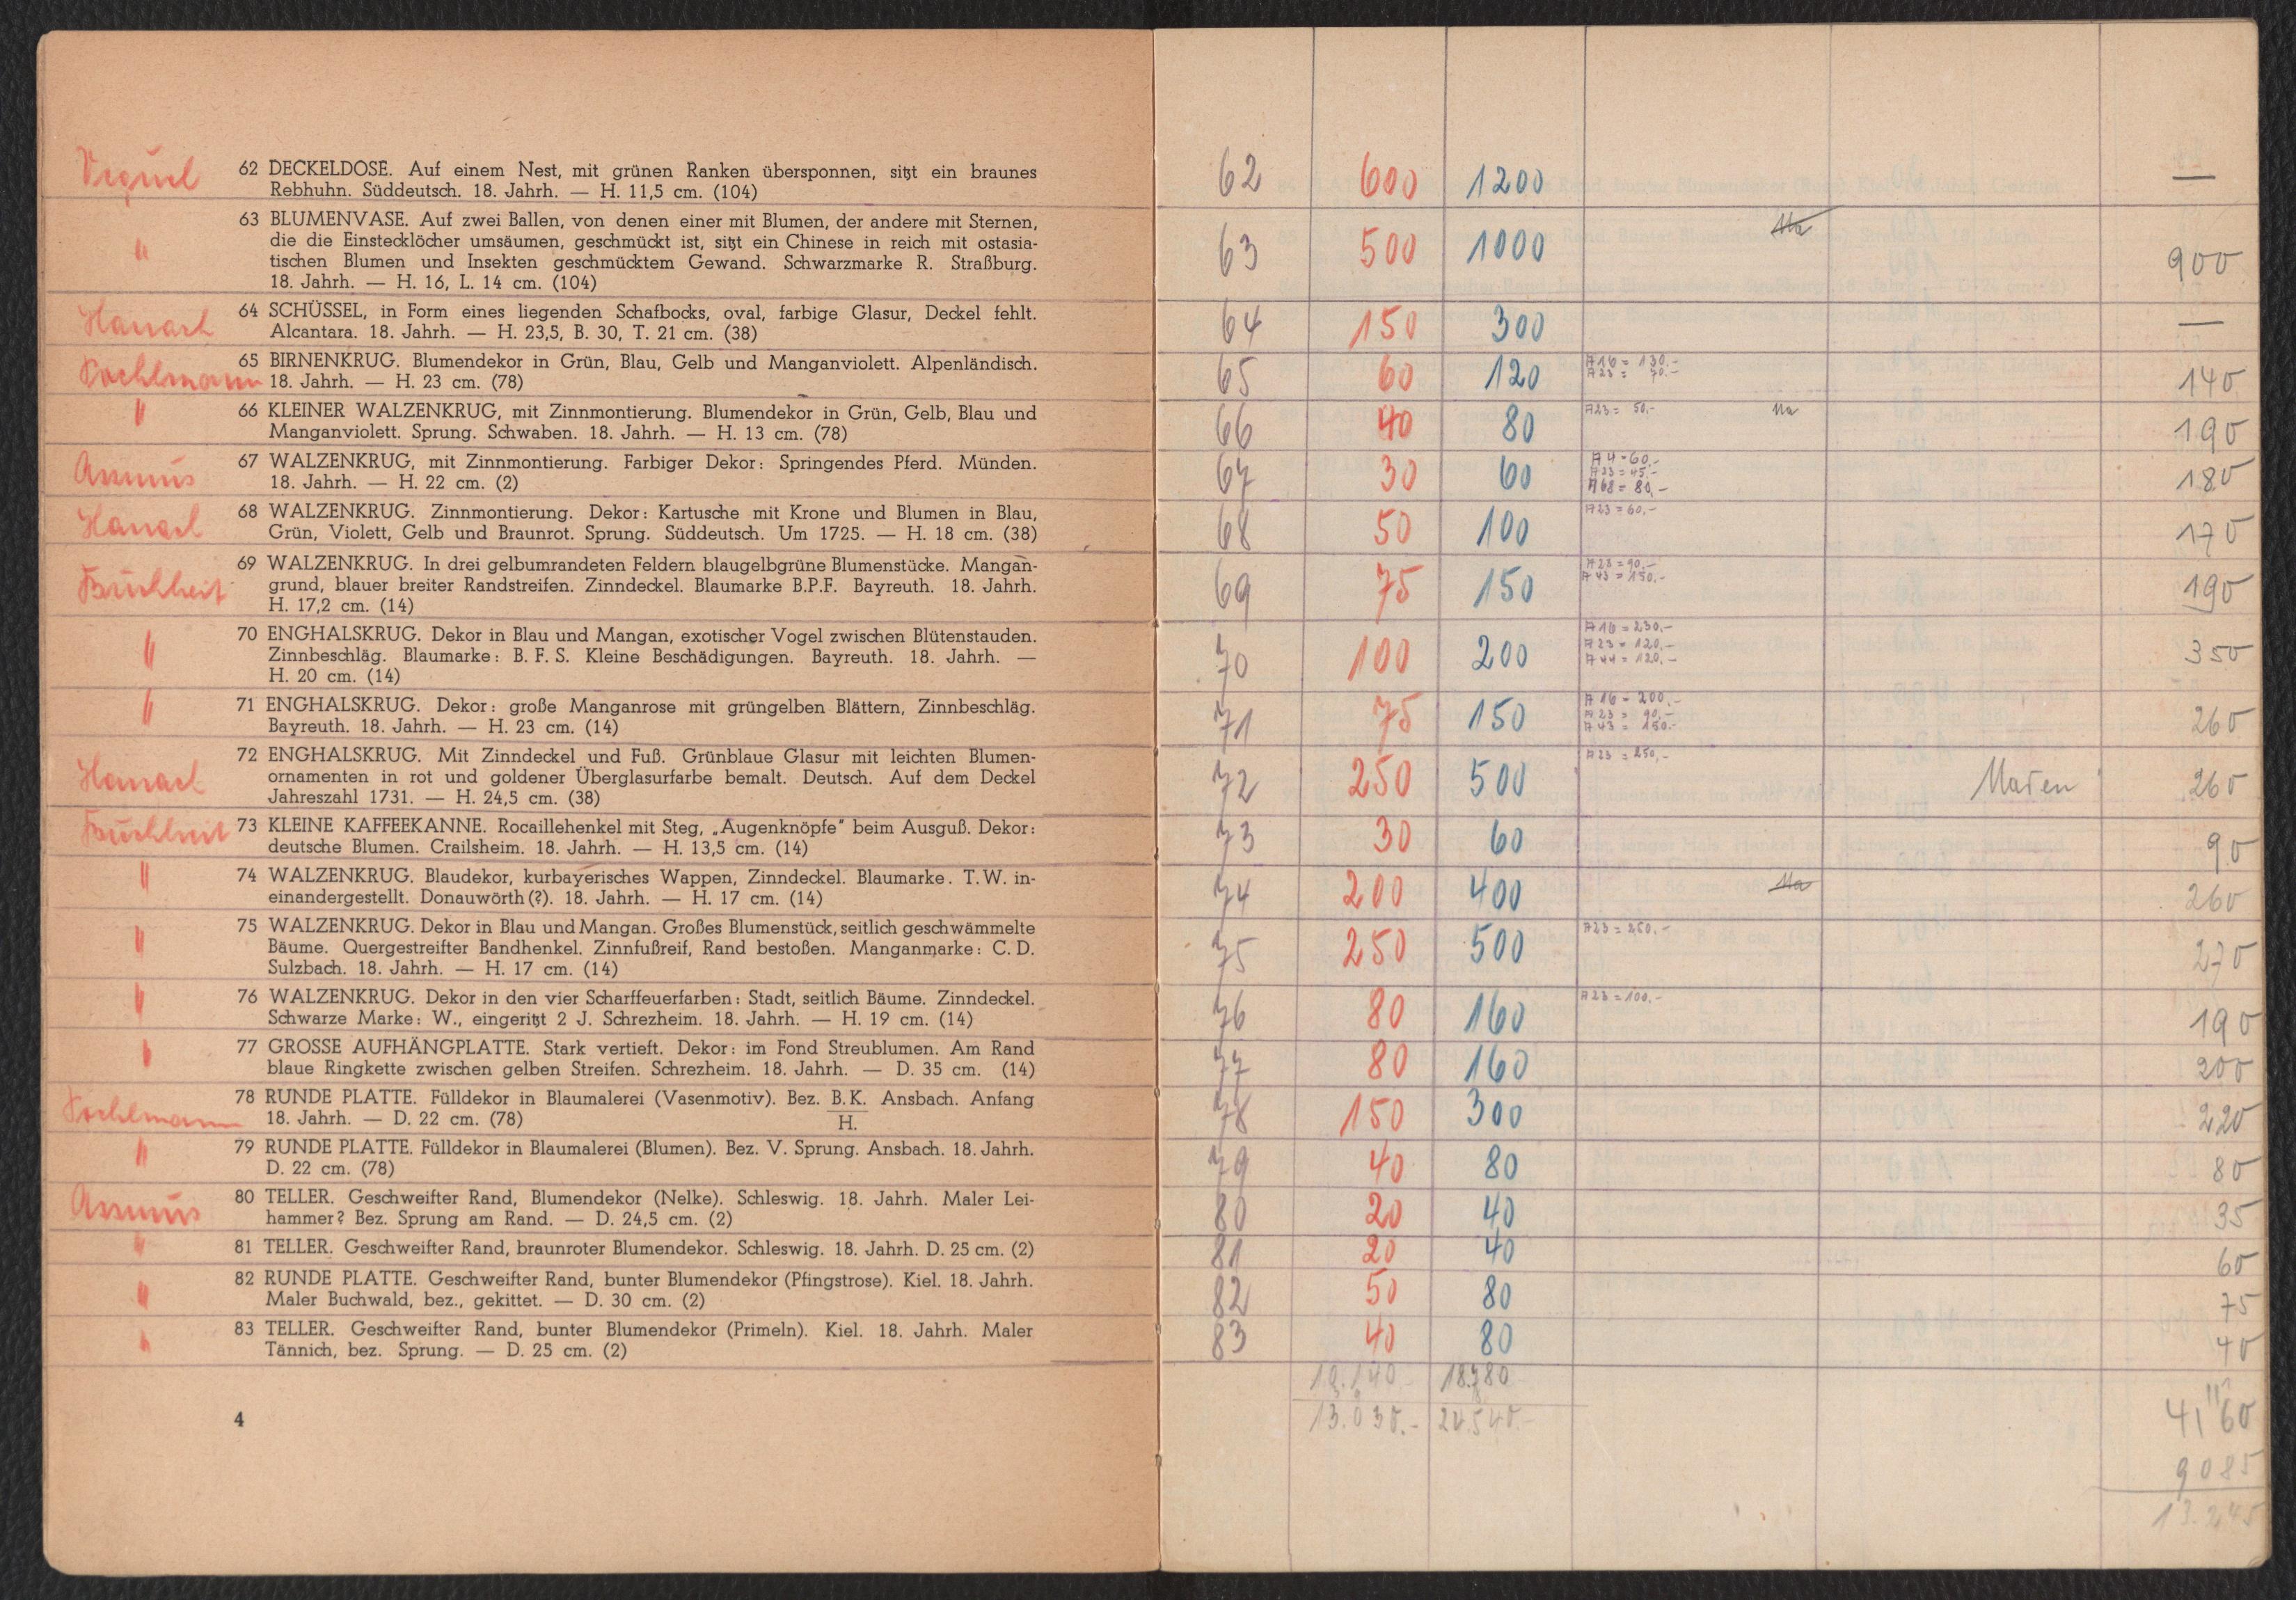 62 DECKELDOSE. Auf einem Nest, mit grünen Ranken übersponnen, sitzt ein braunes
Rebhuhn. Süddeutsch. 18. Jahrh. — H. 11,5 cm. (104)
"
63 BLUMENVASE. Auf zwei Ballen, von denen einer mit Blumen, der andere mit Sternen,
die die Einstecklöcher umsäumen, geschmückt ist, sitzt ein Chinese in reich mit ostasia-
tischen Blumen und Insekten geschmücktem Gewand. Schwarzmarke R. Straßburg.
18. Jahrh. — H. 16, L. 14 cm. (104)
64 SCHÜSSEL, in Form eines liegenden Schafbocks, oval, farbige Glasur, Deckel fehlt.
Alcantara. 18. Jahrh. — H. 23,5, B. 30, T. 21 cm. (38)
Pöehlmann
65 BIRNENKRUG. Blumendekor in Grün, Blau, Gelb und Manganviolett. Alpenländisch.
18. Jahrh. — H. 23 cm. (78)
"
66 KLEINER WALZENKRUG, mit Zinnmontierung. Blumendekor in Grün, Gelb, Blau und
Manganviolett. Sprung. Schwaben. 18. Jahrh. — H. 13 cm. (78)
Assmus
67 WALZENKRUG, mit Zinnmontierung. Farbiger Dekor: Springendes Pferd. Münden.
18. Jahrh. — H. 22 cm. (2)
68 WALZENKRUG. Zinnmontierung. Dekor: Kartusche mit Krone und Blumen in Blau,
Grün, Violett, Gelb und Braunrot. Sprung. Süddeutsch. Um 1725. — H. 18 cm. (38)
Buchheit
69 WALZENKRUG. In drei gelbumrandeten Feldern blaugelbgrüne Blumenstücke. Mangan-
grund, blauer breiter Randstreifen. Zinndeckel. Blaumarke B.P.F. Bayreuth. 18. Jahrh.
H. 17,2 cm. (14)
"
70 ENGHALSKRUG. Dekor in Blau und Mangan, exotischer Vogel zwischen Blütenstauden.
Zinnbeschläg. Blaumarke: B. F. S. Kleine Beschädigungen. Bayreuth. 18. Jahrh. —
H. 20 cm. (14)
"
71 ENGHALSKRUG. Dekor: große Manganrose mit grüngelben Blättern, Zinnbeschläg.
Bayreuth. 18. Jahrh. — H. 23 cm. (14)
72 ENGHALSKRUG. Mit Zinndeckel und Fuß. Grünblaue Glasur mit leichten Blumen-
ornamenten in rot und goldener Überglasurfarbe bemalt. Deutsch. Auf dem Deckel
Jahreszahl 1731. — H. 24,5 cm. (38)
Buchheit
73 KLEINE KAFFEEKANNE. Rocaillehenkel mit Steg, „Augenknöpfe" beim Ausguß. Dekor:
deutsche Blumen. Crailsheim. 18. Jahrh. — H. 13,5 cm. (14)
"
74 WALZENKRUG. Blaudekor, kurbayerisches Wappen, Zinndeckel. Blaumarke. T. W. in-
einandergestellt. Donauwörth (?). 18. Jahrh. — H. 17 cm. (14)
"
75 WALZENKRUG. Dekor in Blau und Mangan. Großes Blumenstück, seitlich geschwämmelte
Bäume. Quergestreifter Bandhenkel. Zinnfußreif, Rand bestoßen. Manganmarke: C. D.
Sulzbach. 18. Jahrh. — H. 17 cm. (14)
"
76 WALZENKRUG. Dekor in den vier Scharffeuerfarben: Stadt, seitlich Bäume. Zinndeckel.
Schwarze Marke: W., eingeritzt 2 J. Schrezheim. 18. Jahrh. — H. 19 cm. (14)
"
77 GROSSE AUFHÄNGPLATTE. Stark vertieft. Dekor: im Fond Streublumen. Am Rand
blaue Ringkette zwischen gelben Streifen. Schrezheim. 18. Jahrh. — D. 35 cm. (14)
Pöehlmann
78 RUNDE PLATTE. Fülldekor in Blaumalerei (Vasenmotiv). Bez. B. K. Ansbach. Anfang
18. Jahrh. — D. 22 cm. (78) H.
"
79 RUNDE PLATTE. Fülldekor in Blaumalerei (Blumen). Bez. V. Sprung. Ansbach. 18. Jahrh.
D. 22 cm. (78)
Assmus
80 TELLER. Geschweifter Rand, Blumendekor (Nelke). Schleswig. 18. Jahrh. Maler Lei-
hammer? Bez. Sprung am Rand. — D. 24,5 cm. (2)
"
81 TELLER. Geschweifter Rand, braunroter Blumendekor. Schleswig. 18. Jahrh. D. 25 cm. (2)
"
82 RUNDE PLATTE. Geschweifter Rand, bunter Blumendekor (Pfingstrose). Kiel. 18. Jahrh.
Maler Buchwald, bez., gekittet. — D. 30 cm. (2)
"
83 TELLER. Geschweifter Rand, bunter Blumendekor (Primeln). Kiel. 18. Jahrh. Maler
Tännich, bez. Sprung. — D. 25 cm. (2)
4
62 600 1200 —
63 500 1000 900
64 150 300 —
65 60 120 A16 = 130.- 140
A23 = 70.-
66 40 80 A23 = 50,- 190
67 30 60 A4 - 60.- 180
A23 = 45,-
A68 = 80,-
68 50 100 A23 = 60,- 170
69 75 150 A23 = 90,- 190
A43 = 150,-
70 100 200 A16 = 230,- 350
A23 = 120,-
A44 = 120,-
71 75 150 A16 - 200,- 260
A23 = 90,-
A43 = 150.-
72 250 500 A23 = 250,- 260
73 30 60 90
74 200 400 260
75 250 500 A23 = 250,- 270
76 80 160 A23 = 100,- 190
77 80 160 200
78 150 300 220
79 40 80 80
80 20 40 35
81 20 40 60
82 50 80 75
83 40 80 40
13.030.-
4160
9085
13.245